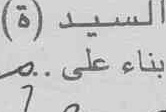 السيد (ة)
بناء على ..